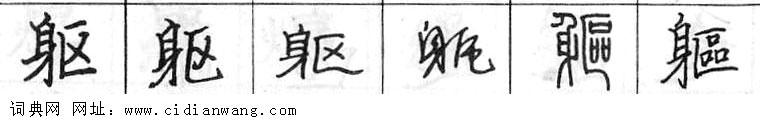 躯 躯 躯 躯 軀 軀
词典网 网址：www.cidianwang.com